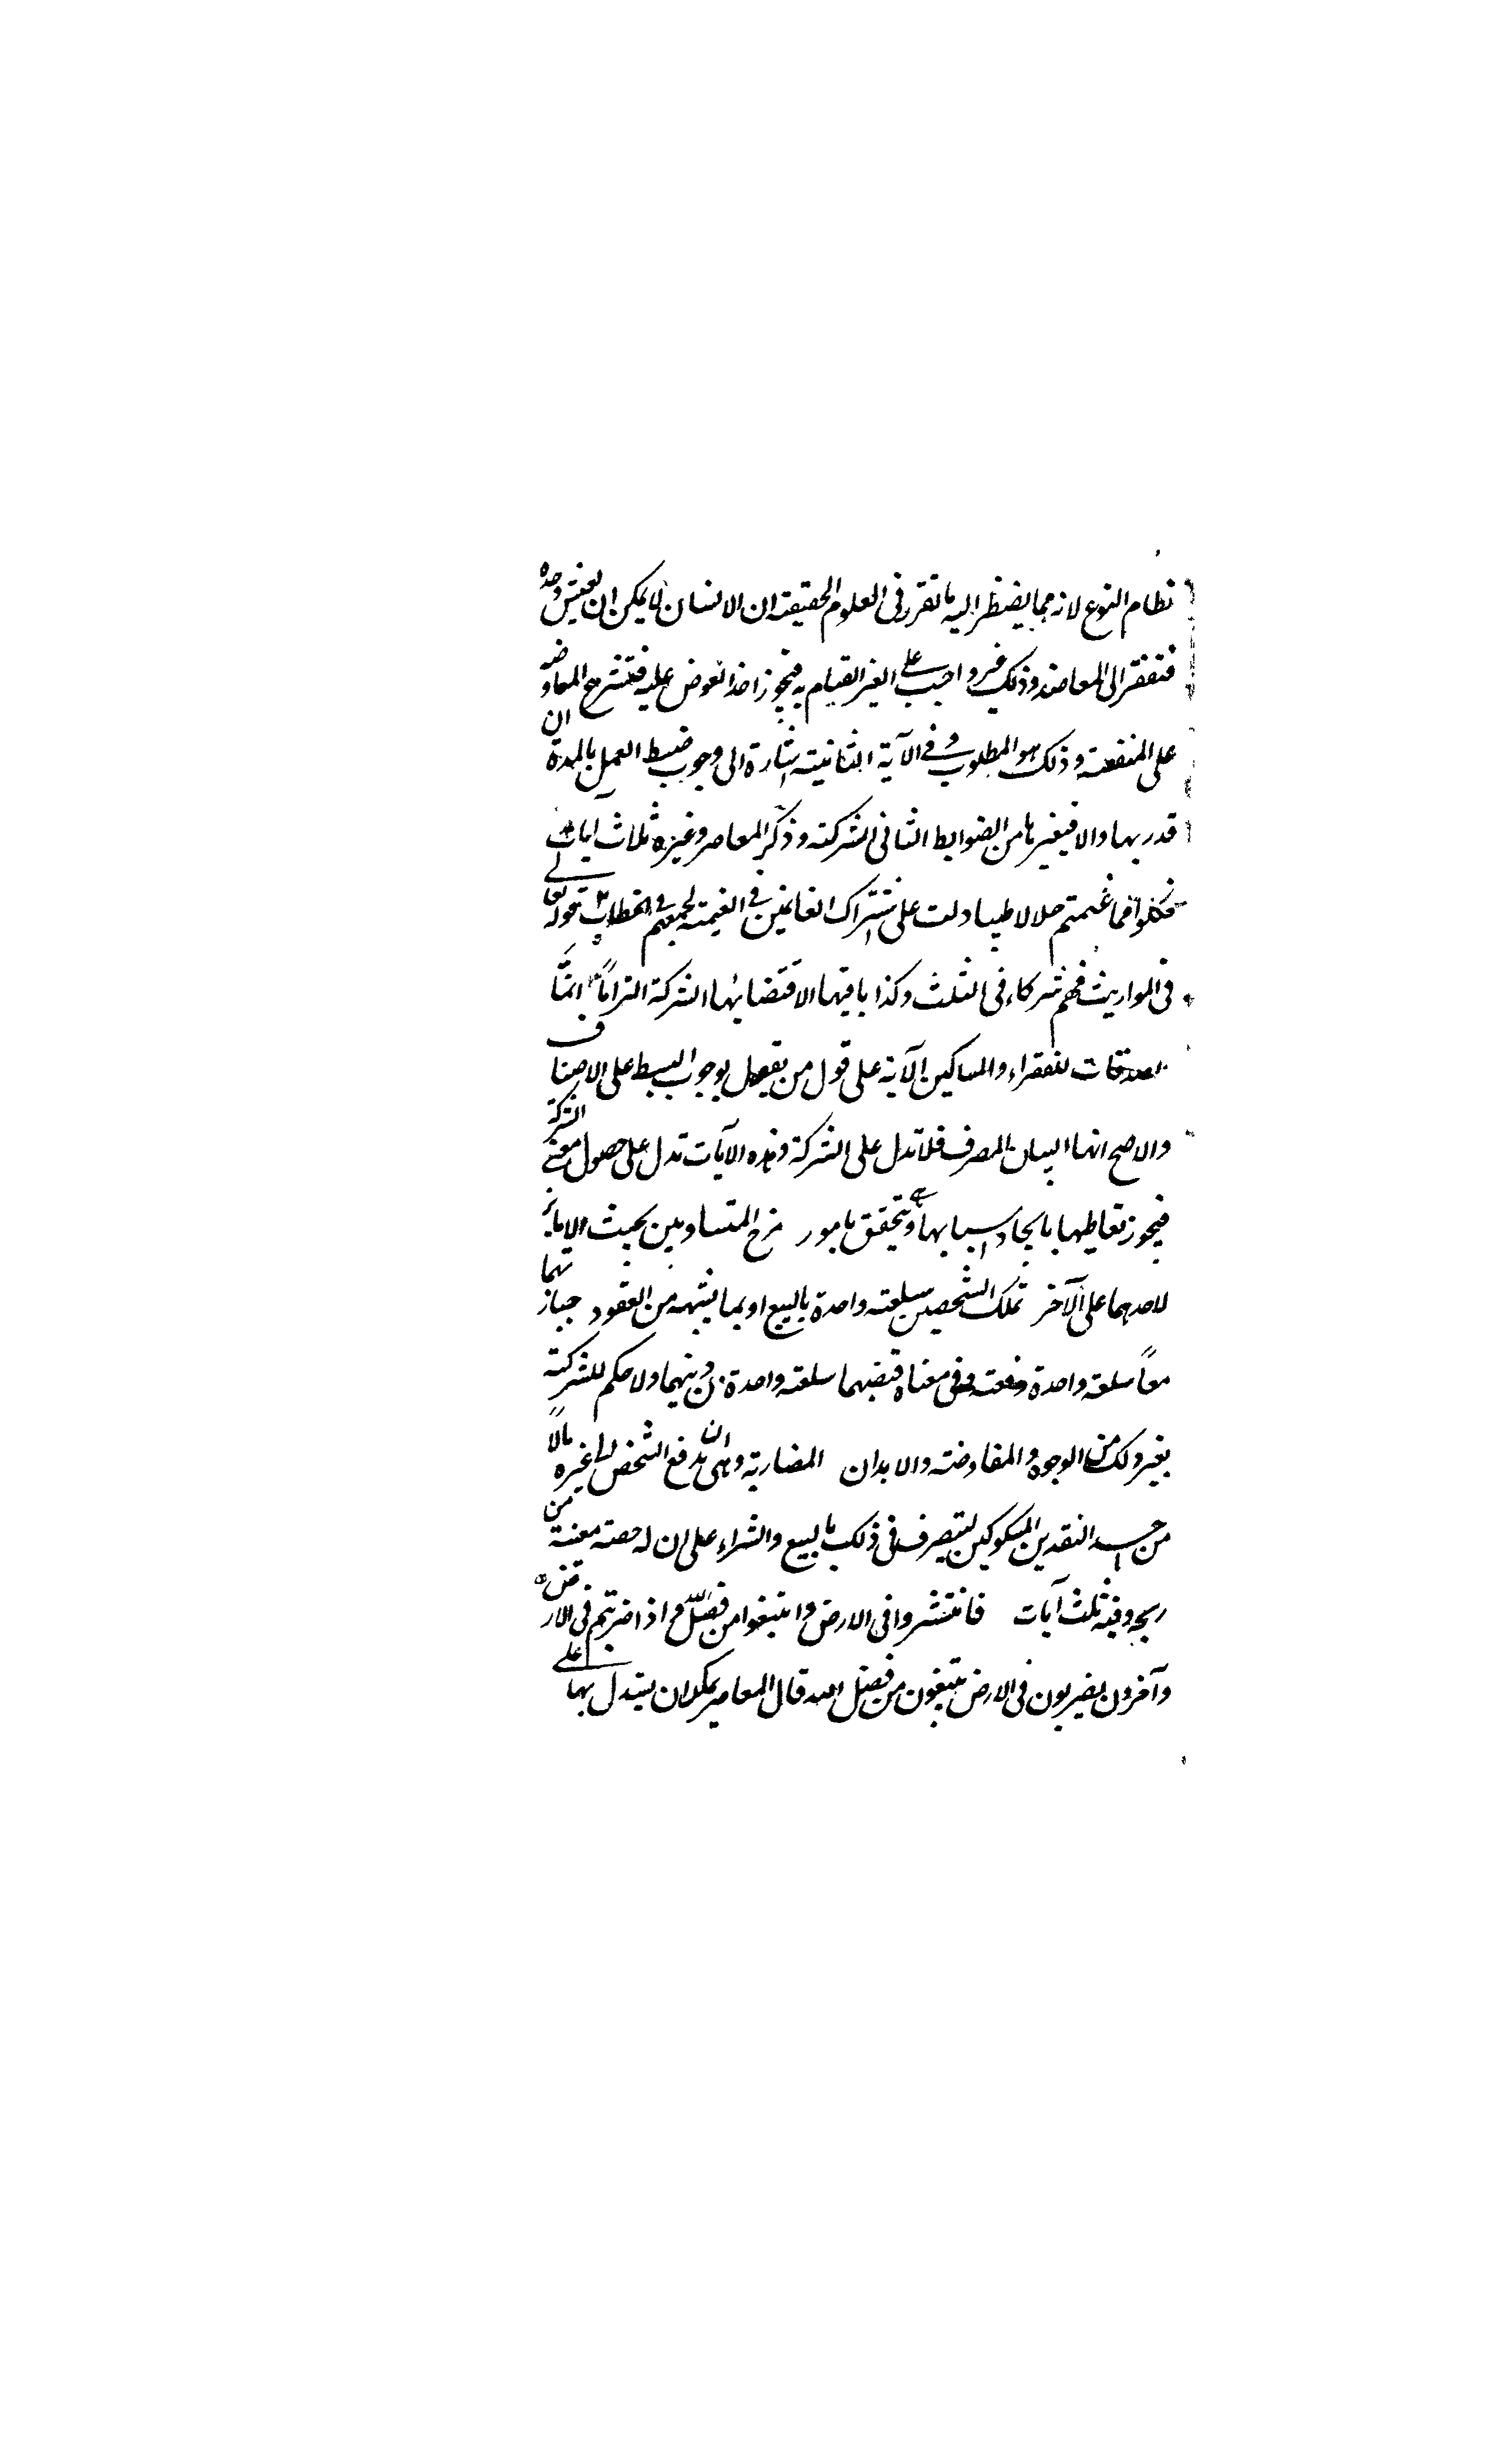 نظام النوع لانه مما يضطر اليه ما تقرر في العلوم الحقيقة ان الانسان لا يمكن ان يعيش وحده
فتفتقر الى المعاضد وذلك غير واجب على الغير القيام به فيجوز اخذ العوض عليه فتشرع المعاوضه
على المنفعة وذلك هو المطلوب وفي الآية الثانية اشارة الى وجوب ضبط العمل بالمدة ان
قدر بها والا فبغيرها من الضوابط الثاني الشركة وذكر المعاصر وغيره ثلاث آيات
فكلوا مما غنمتم حلالا طيبا دلت على اشتراك الغانمين في الغنيمة لجمعهم في الخطاب قوله تعالى
في المواريث فهم شركاء في الثلث وكذا باقيها لاقتضائها الشركة التزاما انما
الصدقات للفقراء والمساكين الآية على قول من يقول بوجوب البسط على الاصناف
والاصح انها لبيان المصرف فلا تدل على الشركة وهذه الآيات تدل على حصول معنى الشركة
فيجوز تعاطيها بايجاد اسبابها وتتحقق بامور مزج المتساويين بحيث لا مايز
لاحدهما على الآخر تملك الشخصين سلعة واحدة بالبيع او بما يشبهه من العقود حيازتهما
معاً سلعة واحدة دفعة وفي معناه قبضهما سلعة واحدة بينهما ولا حكم للشركة
بغير ذلك من الوجوه والمفاوضة والابدان المضاربة وهي ان يدفع الشخص الى غيره مالاً
من احد النقدين المسكوكين ليتصرف في ذلك بالبيع والشراء على ان له حصة معينة من
ربحه وفيه ثلث آيات فانتشروا في الارض وابتغوا من فضل الله واذا ضربتم في الارض
وآخرون يضربون في الارض يبتغون من فضل الله قال المعاصر يمكن ان يستدل بها على